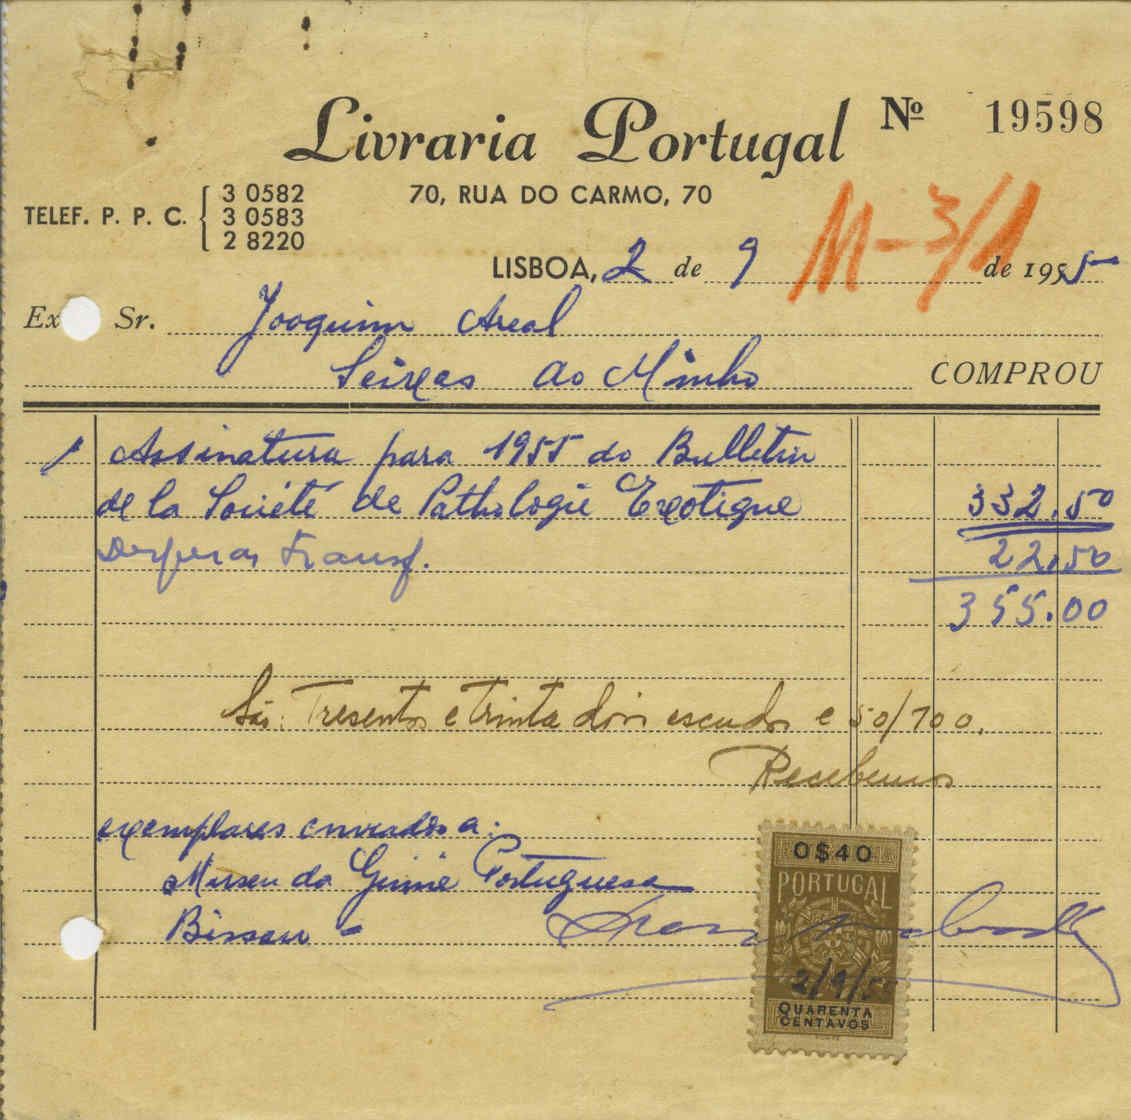 Livraria Portugal
Nº 19598
70, RUA DO CARMO, 70
TELEF. P. P. C. { 3 0582
3 0583
2 8220
M-3/1
LISBOA, 2 de 9 de 1955
Ex Sr. Joaquim Areal
Seixas ao Minho COMPROU
1 Assinatura para 1955 do Bulletin
de la Société de Pathologie Exotique 332.50
Despesas transf. 22.50
355.00
São: Tresentos e trinta dois escudos e 50/100.
Recebemos
exemplares enviados a:
Museu da Guiné Portuguesa
Bissau
0$40
PORTUGAL
2/9/5
QUARENTA
CENTAVOS